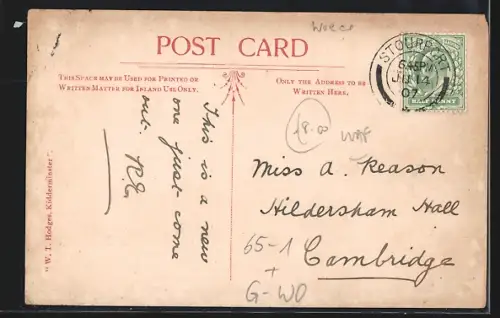 Worcs
POST CARD
THIS SPACE MAY BE USED FOR PRINTED OR
WRITTEN MATTER FOR INLAND USE ONLY.
ONLY THE ADDRESS TO BE
WRITTEN HERE.
STOURPORT
JU 14
07
HALF PENNY
This is a new
one just come
out. R.E.
£8.00
Miss A. Reason
Hildersham Hall
Cambridge
65-1
+
G-WO
"W. T. Hodges, Kidderminster"